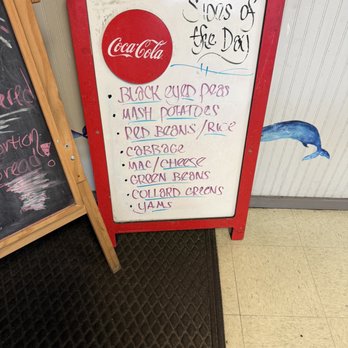 Signs of
the Day
Coca-Cola
• BLACK EYED PEAS
• MASH POTATOES
• RED BEANS/RICE
• CABBAGE
• MAC/CHEESE
• GREEN BEANS
• COLLARD GREENS
• YAMS
ered
ortion
read